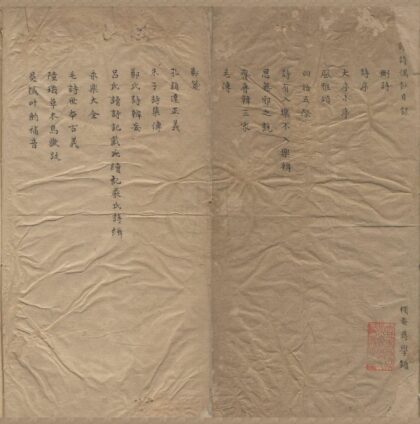 詩偶記目錄
刪詩
詩序
大序小序
風雅頌
四始五際
詩有入樂不入樂辨
思無邪之說
齊魯韓三家
毛傳
鄭箋
孔穎達正義
朱子詩集傳
鄭氏詩辨妄
呂氏讀詩記戴氏續記嚴氏詩緝
永樂大全
毛詩世本古義
陸璣草木鳥獸疏
吳棫叶韻補音